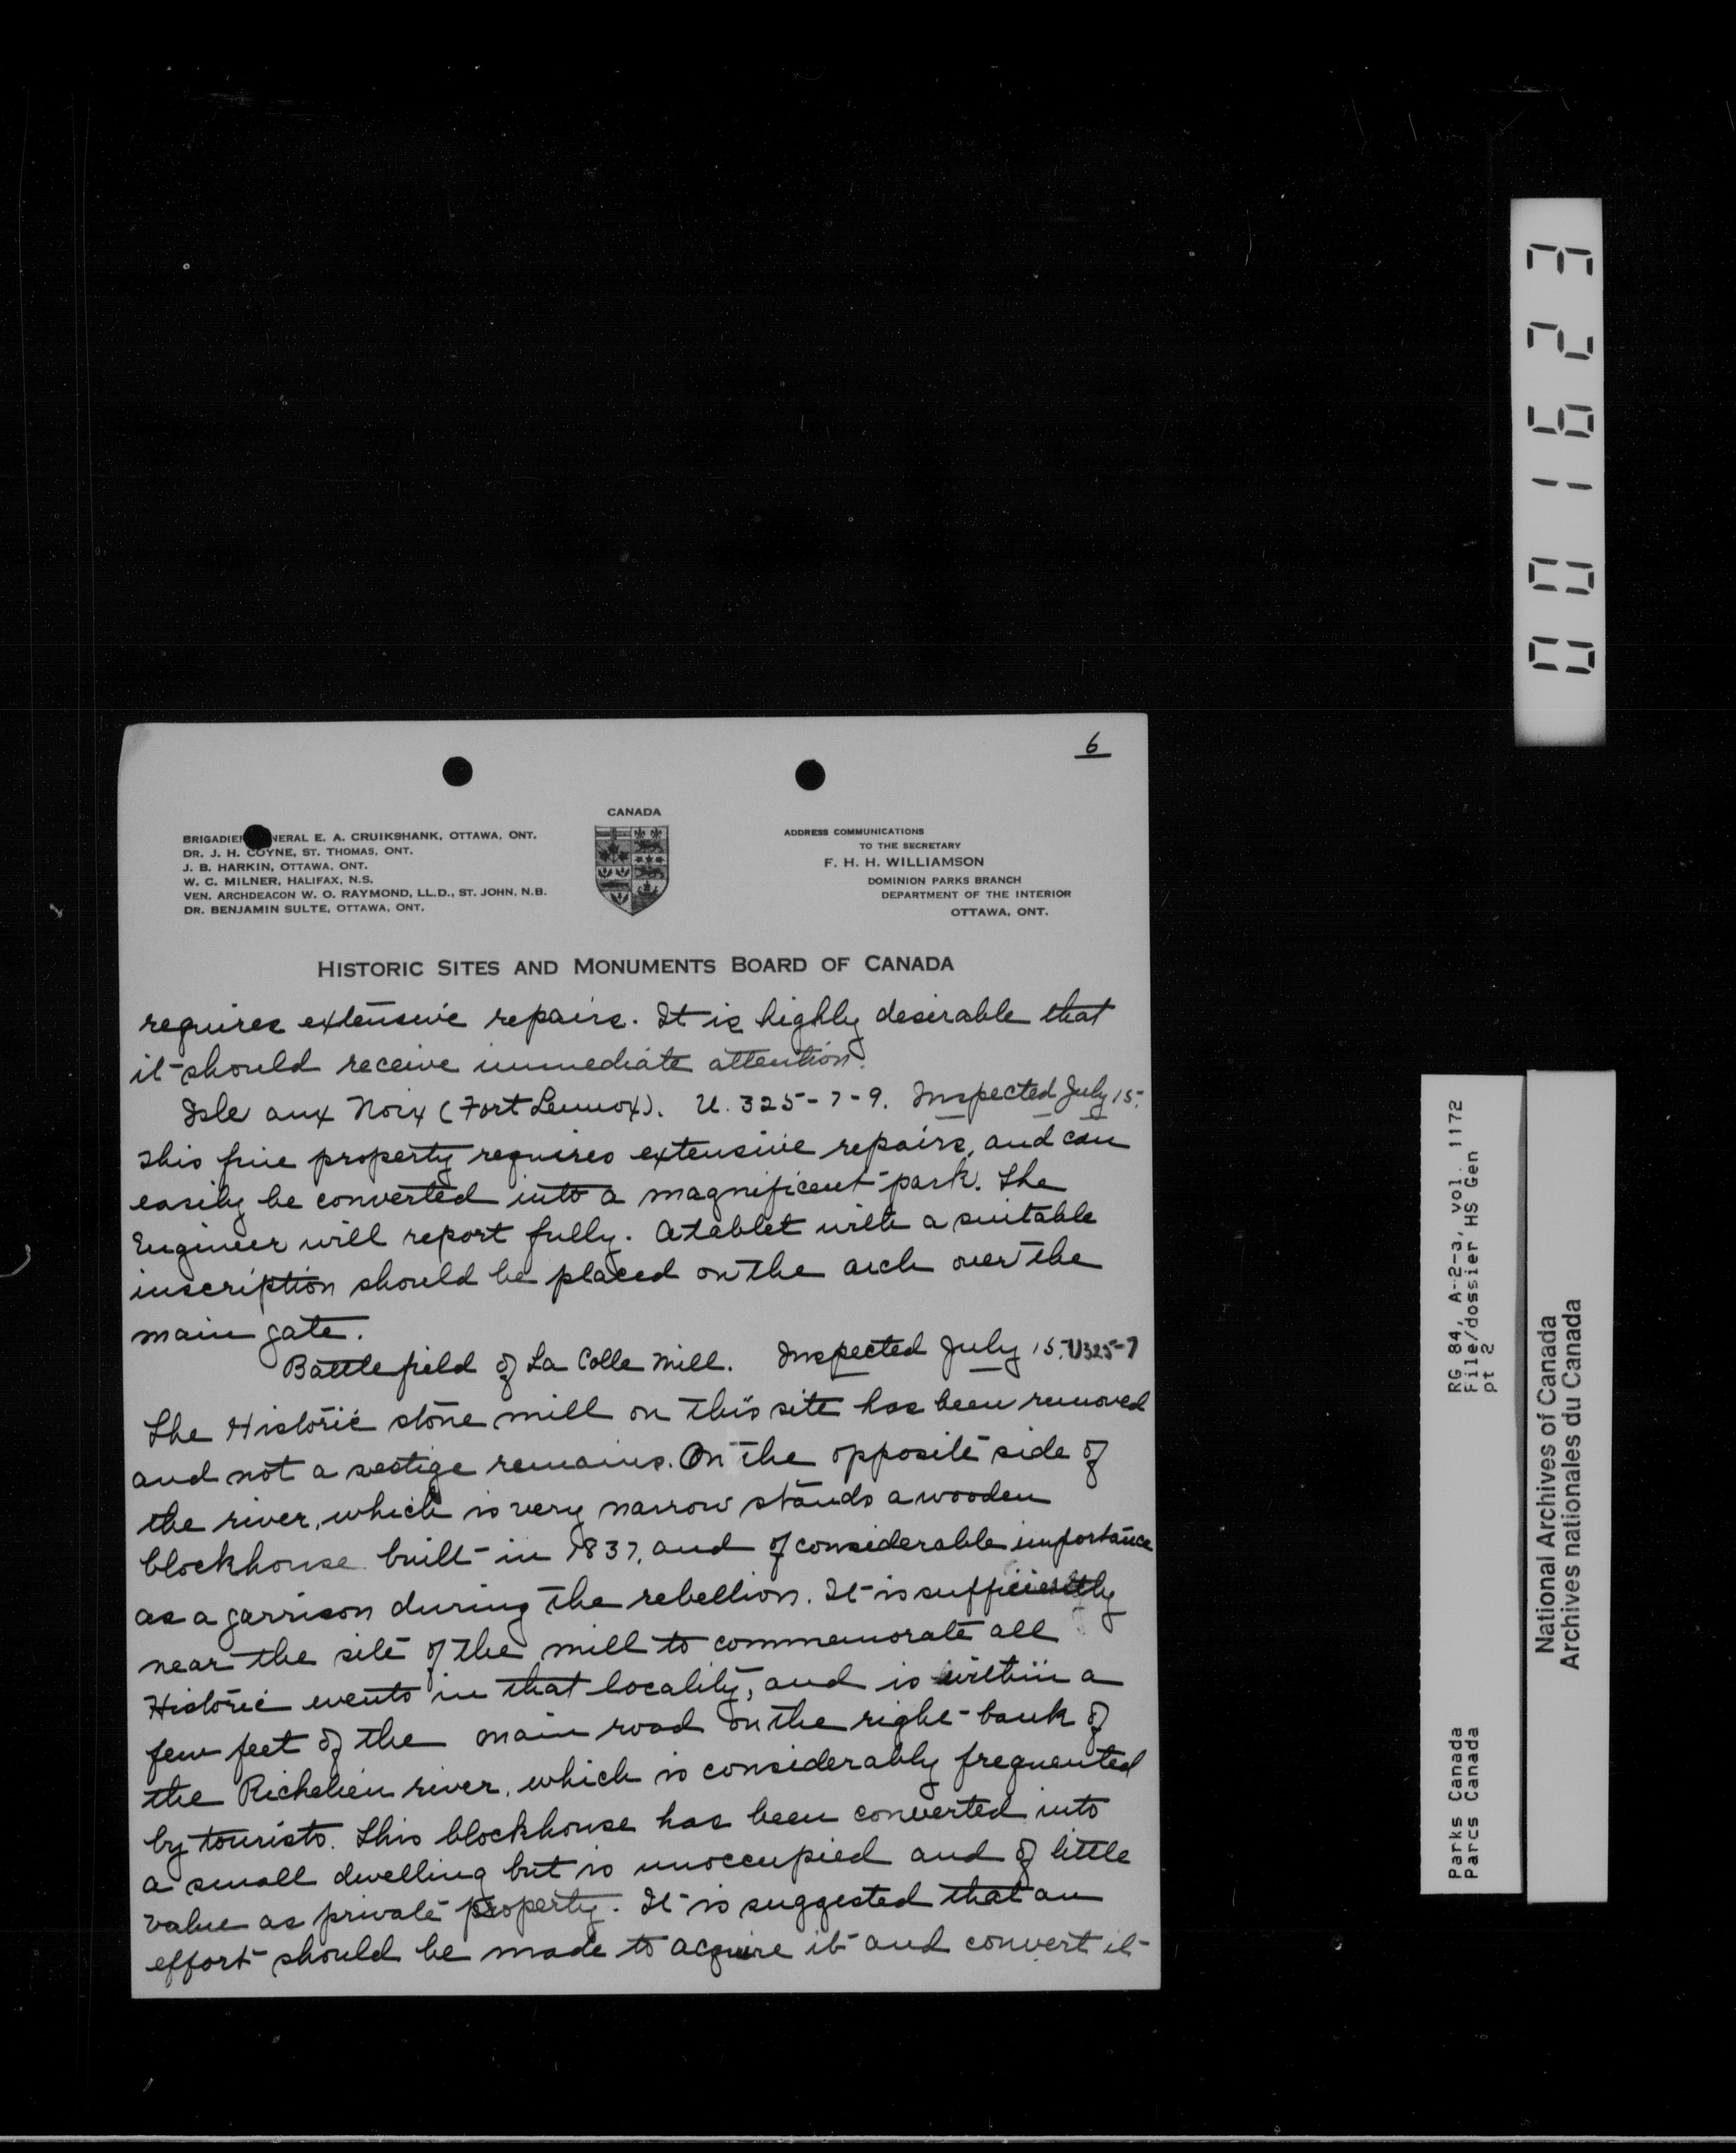 6
CANADA
BRIGADIER GENERAL E. A. CRUIKSHANK, OTTAWA, ONT.
DR. J. H. COYNE, ST. THOMAS, ONT.
J. B. HARKIN, OTTAWA, ONT.
W. C. MILNER, HALIFAX, N.S.
VEN. ARCHDEACON W. O. RAYMOND, LL.D., ST. JOHN, N.B.
DR. BENJAMIN SULTE, OTTAWA, ONT.
ADDRESS COMMUNICATIONS
TO THE SECRETARY
F. H. H. WILLIAMSON
DOMINION PARKS BRANCH
DEPARTMENT OF THE INTERIOR
OTTAWA, ONT.
HISTORIC SITES AND MONUMENTS BOARD OF CANADA
requires extensive repairs. It is highly desirable that
it should receive immediate attention.
Isle aux Noix (Fort Lennox). U. 325-7-9. Inspected July 15.
This fine property requires extensive repairs, and can
easily be converted into a magnificent park. The
Engineer will report fully. A tablet with a suitable
inscription should be placed on the arch over the
main gate.
Battlefield of La Colle Mill. Inspected July 15. U325-7
The Historic stone mill on this site has been removed
and not a vestige remains. On the opposite side of
the river, which is very narrow stands a wooden
blockhouse built in 1837, and of considerable importance
as a garrison during the rebellion. It is sufficiently
near the site of the mill to commemorate all
Historic events in that locality, and is within a
few feet of the main road on the right bank of
the Richelieu river, which is considerably frequented
by tourists. This blockhouse has been converted into
a small dwelling but is unoccupied and of little
value as private property. It is suggested that an
effort should be made to acquire it and convert it
001623
RG 84, A-2-a, vol. 1172
File/dossier HS Gen
pt 2
Parks Canada
Parcs Canada
National Archives of Canada
Archives nationales du Canada